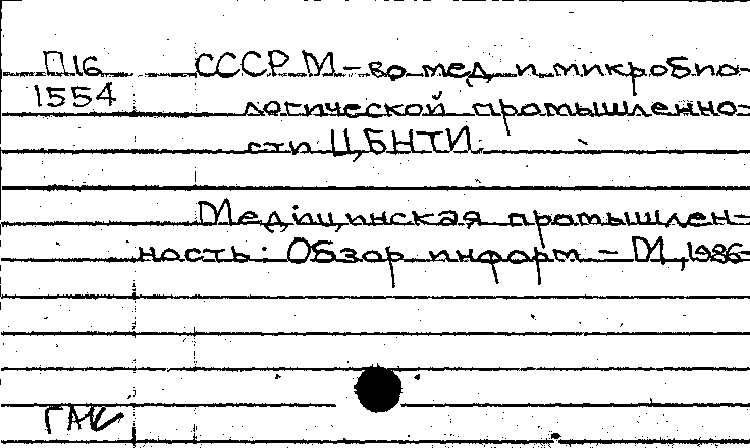 П16 СССР М-во мед. и микробио-
1554 логической промышленно-
сти ЦБНТИ.
Медицинская промышлен-
ность: Обзор. информ. - М., 1986-
ГАК